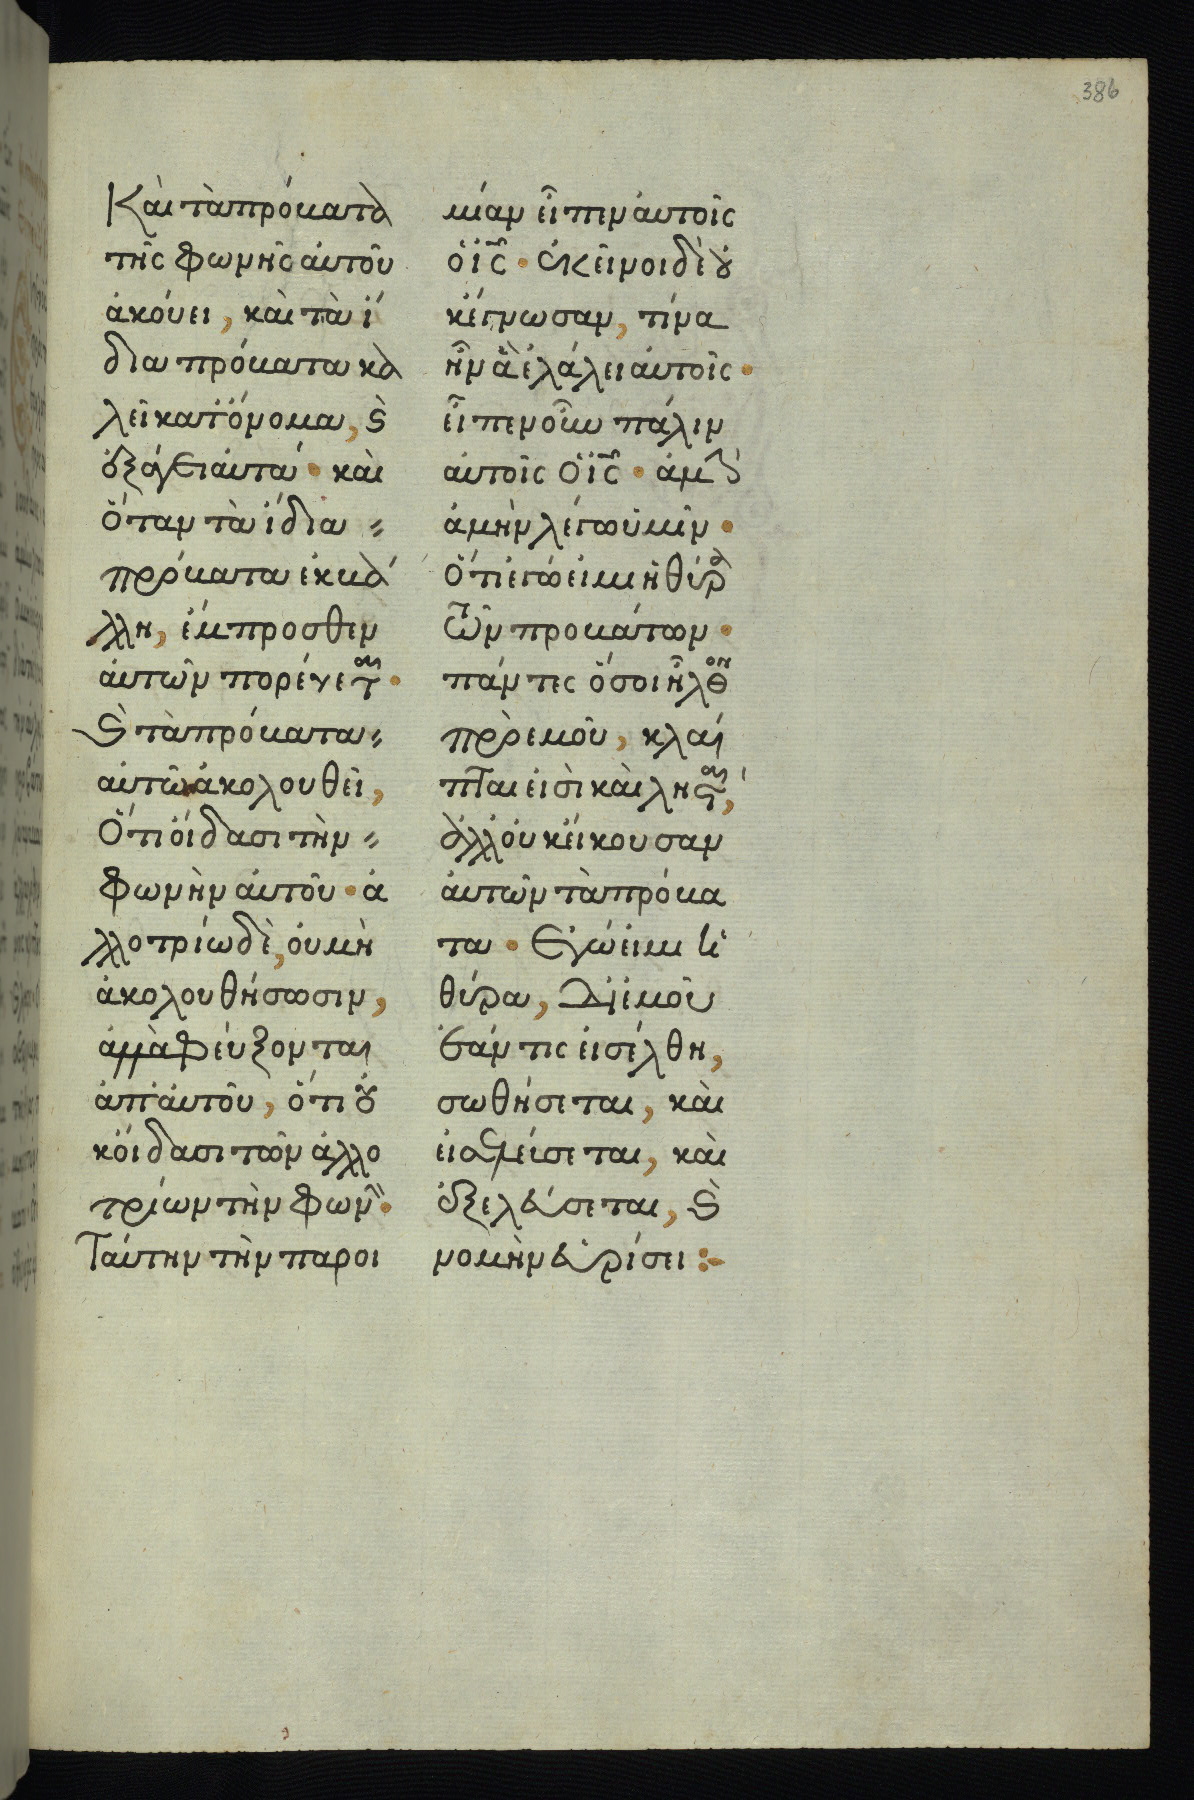 386
Καὶ τὰ πρόβατα
τῆς φωνῆς αὐτοῦ
ἀκούει, καὶ τὰ ἴ
δια πρόβατα κα
λεῖ κατ' ὄνομα, ϗ̀
ἐξάγει αὐτά· καὶ
Ὅταν τὰ ἴδια
πρόβατα ἐκβά
λλη, ἔμπροσθεν
αὐτῶν πορέυετ(αι)·
ϗ̀ τὰ πρόβατα
αὐτῶ ἀκολουθεῖ,
Ὅτι ὄιδασι τὴν
φωνὴν ἀυτοῦ· ἀ
λλοτρίω δὲ, ὀυ μὴ
ἀκολουθήσωσιν,
ἀλλὰ φέυξονται
ἀπ' ἀυτοῦ, ὅτι ὀυ
κ ὄιδασι τῶν ἀλλο
τρίων τὴν φων(ήν)·
Ταύτην τὴν παροι
μίαν εἶπεν ἀυτοῖς
ὁ ι̅ς̅· ἐκεῖνοι δὲ ὀυ
κ ἔγνωσαν, τίνα
ἦν ἃ ἐλάλει ἀυτοῖς·
εἶπεν οὖν πάλιν
ἀυτοῖς ὁ ι̅ς̅· ἀμ(ὴν)
ἀμὴν λέγω ὑμῖν·
Ὅτι ἐγώ ἐιμι ἡ θύρα
τῶν προβάτων·
πάντες ὅσοι ἦλθον
πρὸ ἐμοῦ, κλέ
πται ἐισὶ καὶ λησταί,
ἀλλ' ὀυκ ἤκουσαν
ἀυτῶν τὰ πρόβα
τα· Ἐγώ ἐιμι ἡ
θύρα, δι' ἐμοῦ
ἐάν τις ἐισέλθη,
σωθήσεται, καὶ
ἐισελεύσεται, καὶ
ἐξελεύσεται, ϗ̀
νομὴν ἑυρήσει: